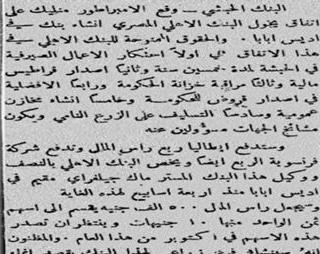 البنك الحبشي — وقع الامبراطور منليك على
اتفاق يخول البنك الاهلي المصري انشاء بنك في
اديس ابابا ٠ والحقوق الممنوحة للبنك الاهلي في
هذا الاتفاق هي اولاً احتكار الاعمال الصيرفية
في الحبشة لمدة خمسين سنة وثانياً اصدار قراطيس
مالية وثالثاً مراقبة خزانة الحكومة ورابعاً الافضلية
في اصدار قروض للحكومة وخامساً انشاء مخازن
عمومية وسادساً التسليف على الزرع النامي ويكون
مشائخ الجهات مسؤولين عنه
وستدفع ايطاليا ربع راس المال وتدفع شركة
فرنسوية الربع ايضاً ويختص البنك الاهلي بالنصف
ووكيل هذا البنك المستر ماك جيلفراي مقيم في
اديس ابابا منذ اربعة اسابيع لهذه الغاية
وسيجعل راس المال ٥٠٠ الف جنيه يقسم الى اسهم
ثمن الواحد منها ١٠ جنيهات وينتظر ان تصدر
هذه الاسهم في اكتوبر من هذا العام ٠ والمظنون